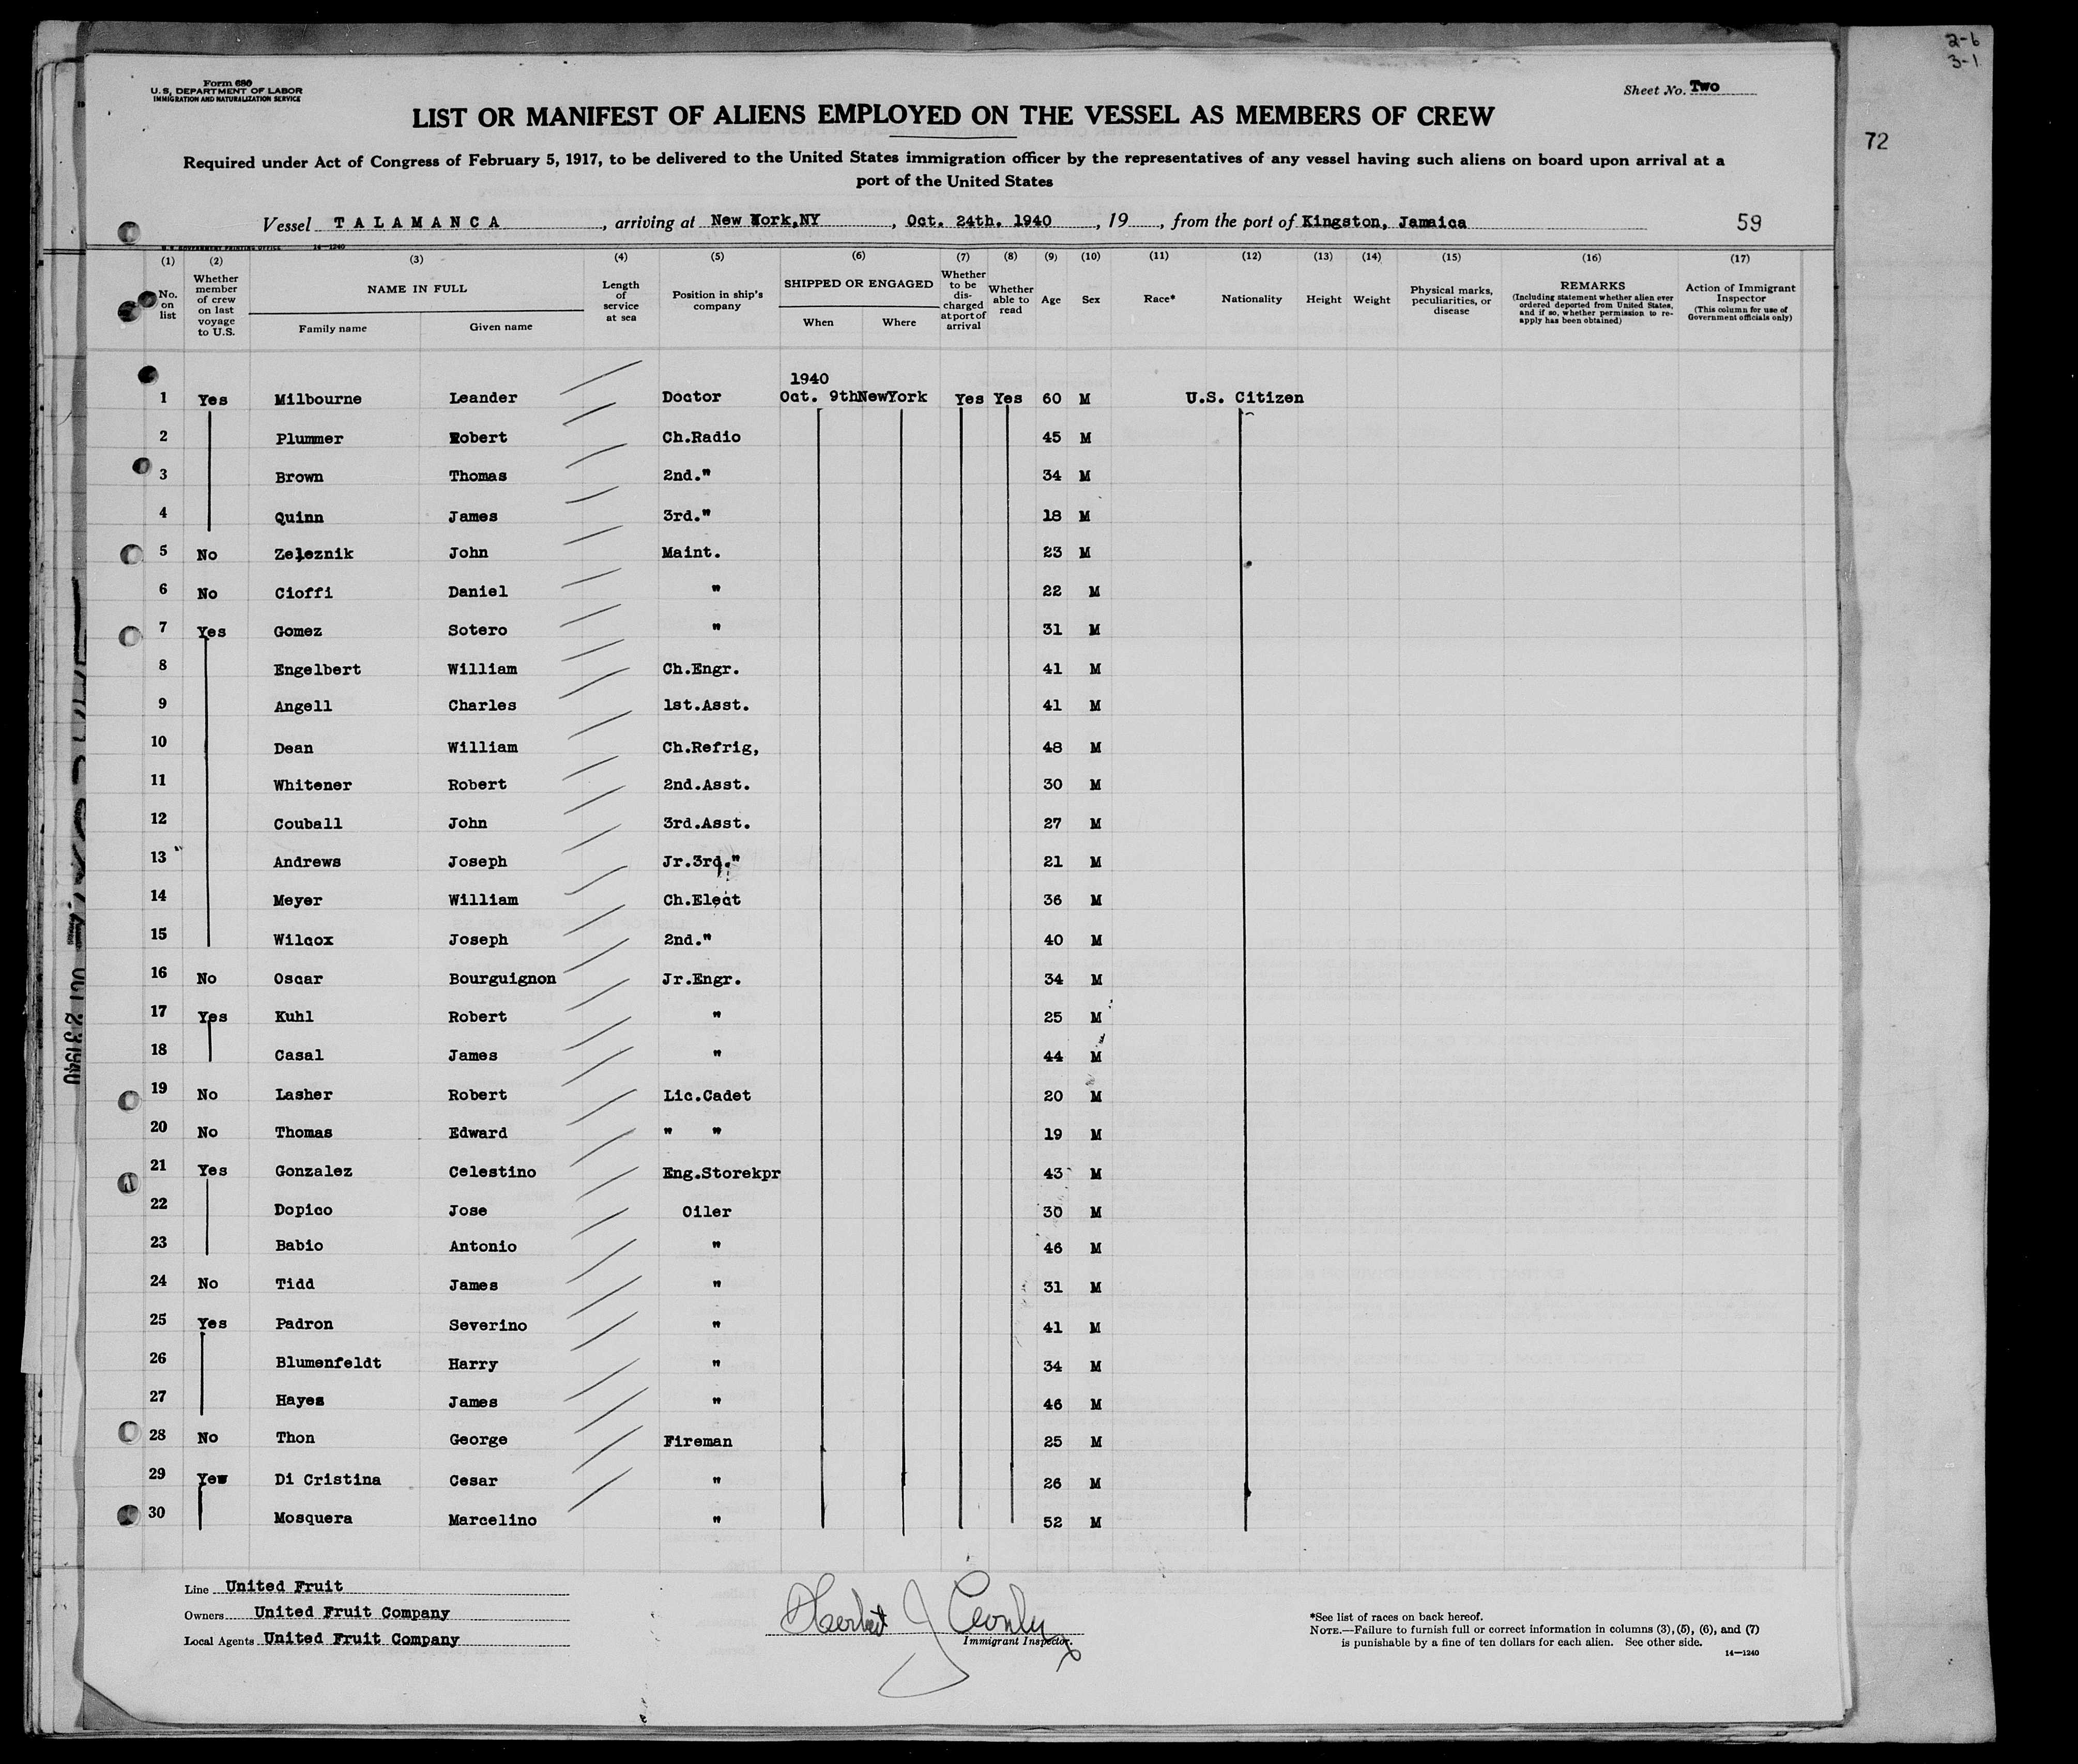 2-6
3-1
72
Form 680
U.S. DEPARTMENT OF LABOR
IMMIGRATION AND NATURALIZATION SERVICE
Sheet No. Two
LIST OR MANIFEST OF ALIENS EMPLOYED ON THE VESSEL AS MEMBERS OF CREW
Required under Act of Congress of February 5, 1917, to be delivered to the United States immigration officer by the representatives of any vessel having such aliens on board upon arrival at a
port of the United States
Vessel TALAMANCA, arriving at New York,NY, Oct. 24th. 1940, 19, from the port of Kingston, Jamaica
59
U.S. GOVERNMENT PRINTING OFFICE 14—1240
(1) No. on list
(2) Whether member of crew on last voyage to U.S.
(3) NAME IN FULL Family name Given name
(4) Length of service at sea
(5) Position in ship's company
(6) SHIPPED OR ENGAGED When Where
(7) Whether to be dis-charged at port of arrival
(8) Whether able to read
(9) Age
(10) Sex
(11) Race*
(12) Nationality
(13) Height
(14) Weight
(15) Physical marks, peculiarities, or disease
(16) REMARKS (Including statement whether alien ever ordered deported from United States, and if so, whether permission to re-apply has been obtained)
(17) Action of Immigrant Inspector (This column for use of Government officials only)
1940
1 Yes Milbourne Leander Doctor Oct. 9th NewYork Yes Yes 60 M U.S. Citizen
2 Plummer Robert Ch.Radio 45 M
3 Brown Thomas 2nd." 34 M
4 Quinn James 3rd." 18 M
5 No Zeleznik John Maint. 23 M
6 No Cioffi Daniel " 22 M
7 Yes Gomez Sotero " 31 M
8 Engelbert William Ch.Engr. 41 M
9 Angell Charles 1st.Asst. 41 M
10 Dean William Ch.Refrig, 48 M
11 Whitener Robert 2nd.Asst. 30 M
12 Couball John 3rd.Asst. 27 M
13 Andrews Joseph Jr.3rd." 21 M
14 Meyer William Ch.Elect 36 M
15 Wilcox Joseph 2nd." 40 M
16 No Oscar Bourguignon Jr.Engr. 34 M
17 Yes Kuhl Robert " 25 M
18 Casal James " 44 M
19 No Lasher Robert Lic.Cadet 20 M
20 No Thomas Edward " " 19 M
21 Yes Gonzalez Celestino Eng.Storekpr 43 M
22 Dopico Jose Oiler 30 M
23 Babio Antonio " 46 M
24 No Tidd James " 31 M
25 Yes Padron Severino " 41 M
26 Blumenfeldt Harry " 34 M
27 Hayes James " 46 M
28 No Thon George Fireman 25 M
29 Yew Di Cristina Cesar " 26 M
30 Mosquera Marcelino " 52 M
Line United Fruit
Owners United Fruit Company
Local Agents United Fruit Company
Herbert J
Immigrant Inspector.
*See list of races on back hereof.
NOTE.—Failure to furnish full or correct information in columns (3), (5), (6), and (7)
is punishable by a fine of ten dollars for each alien. See other side.
14—1240
OCT 23 1940